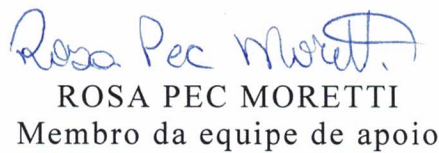 Rosa Pec Moretti
ROSA PEC MORETTI
Membro da equipe de apoio